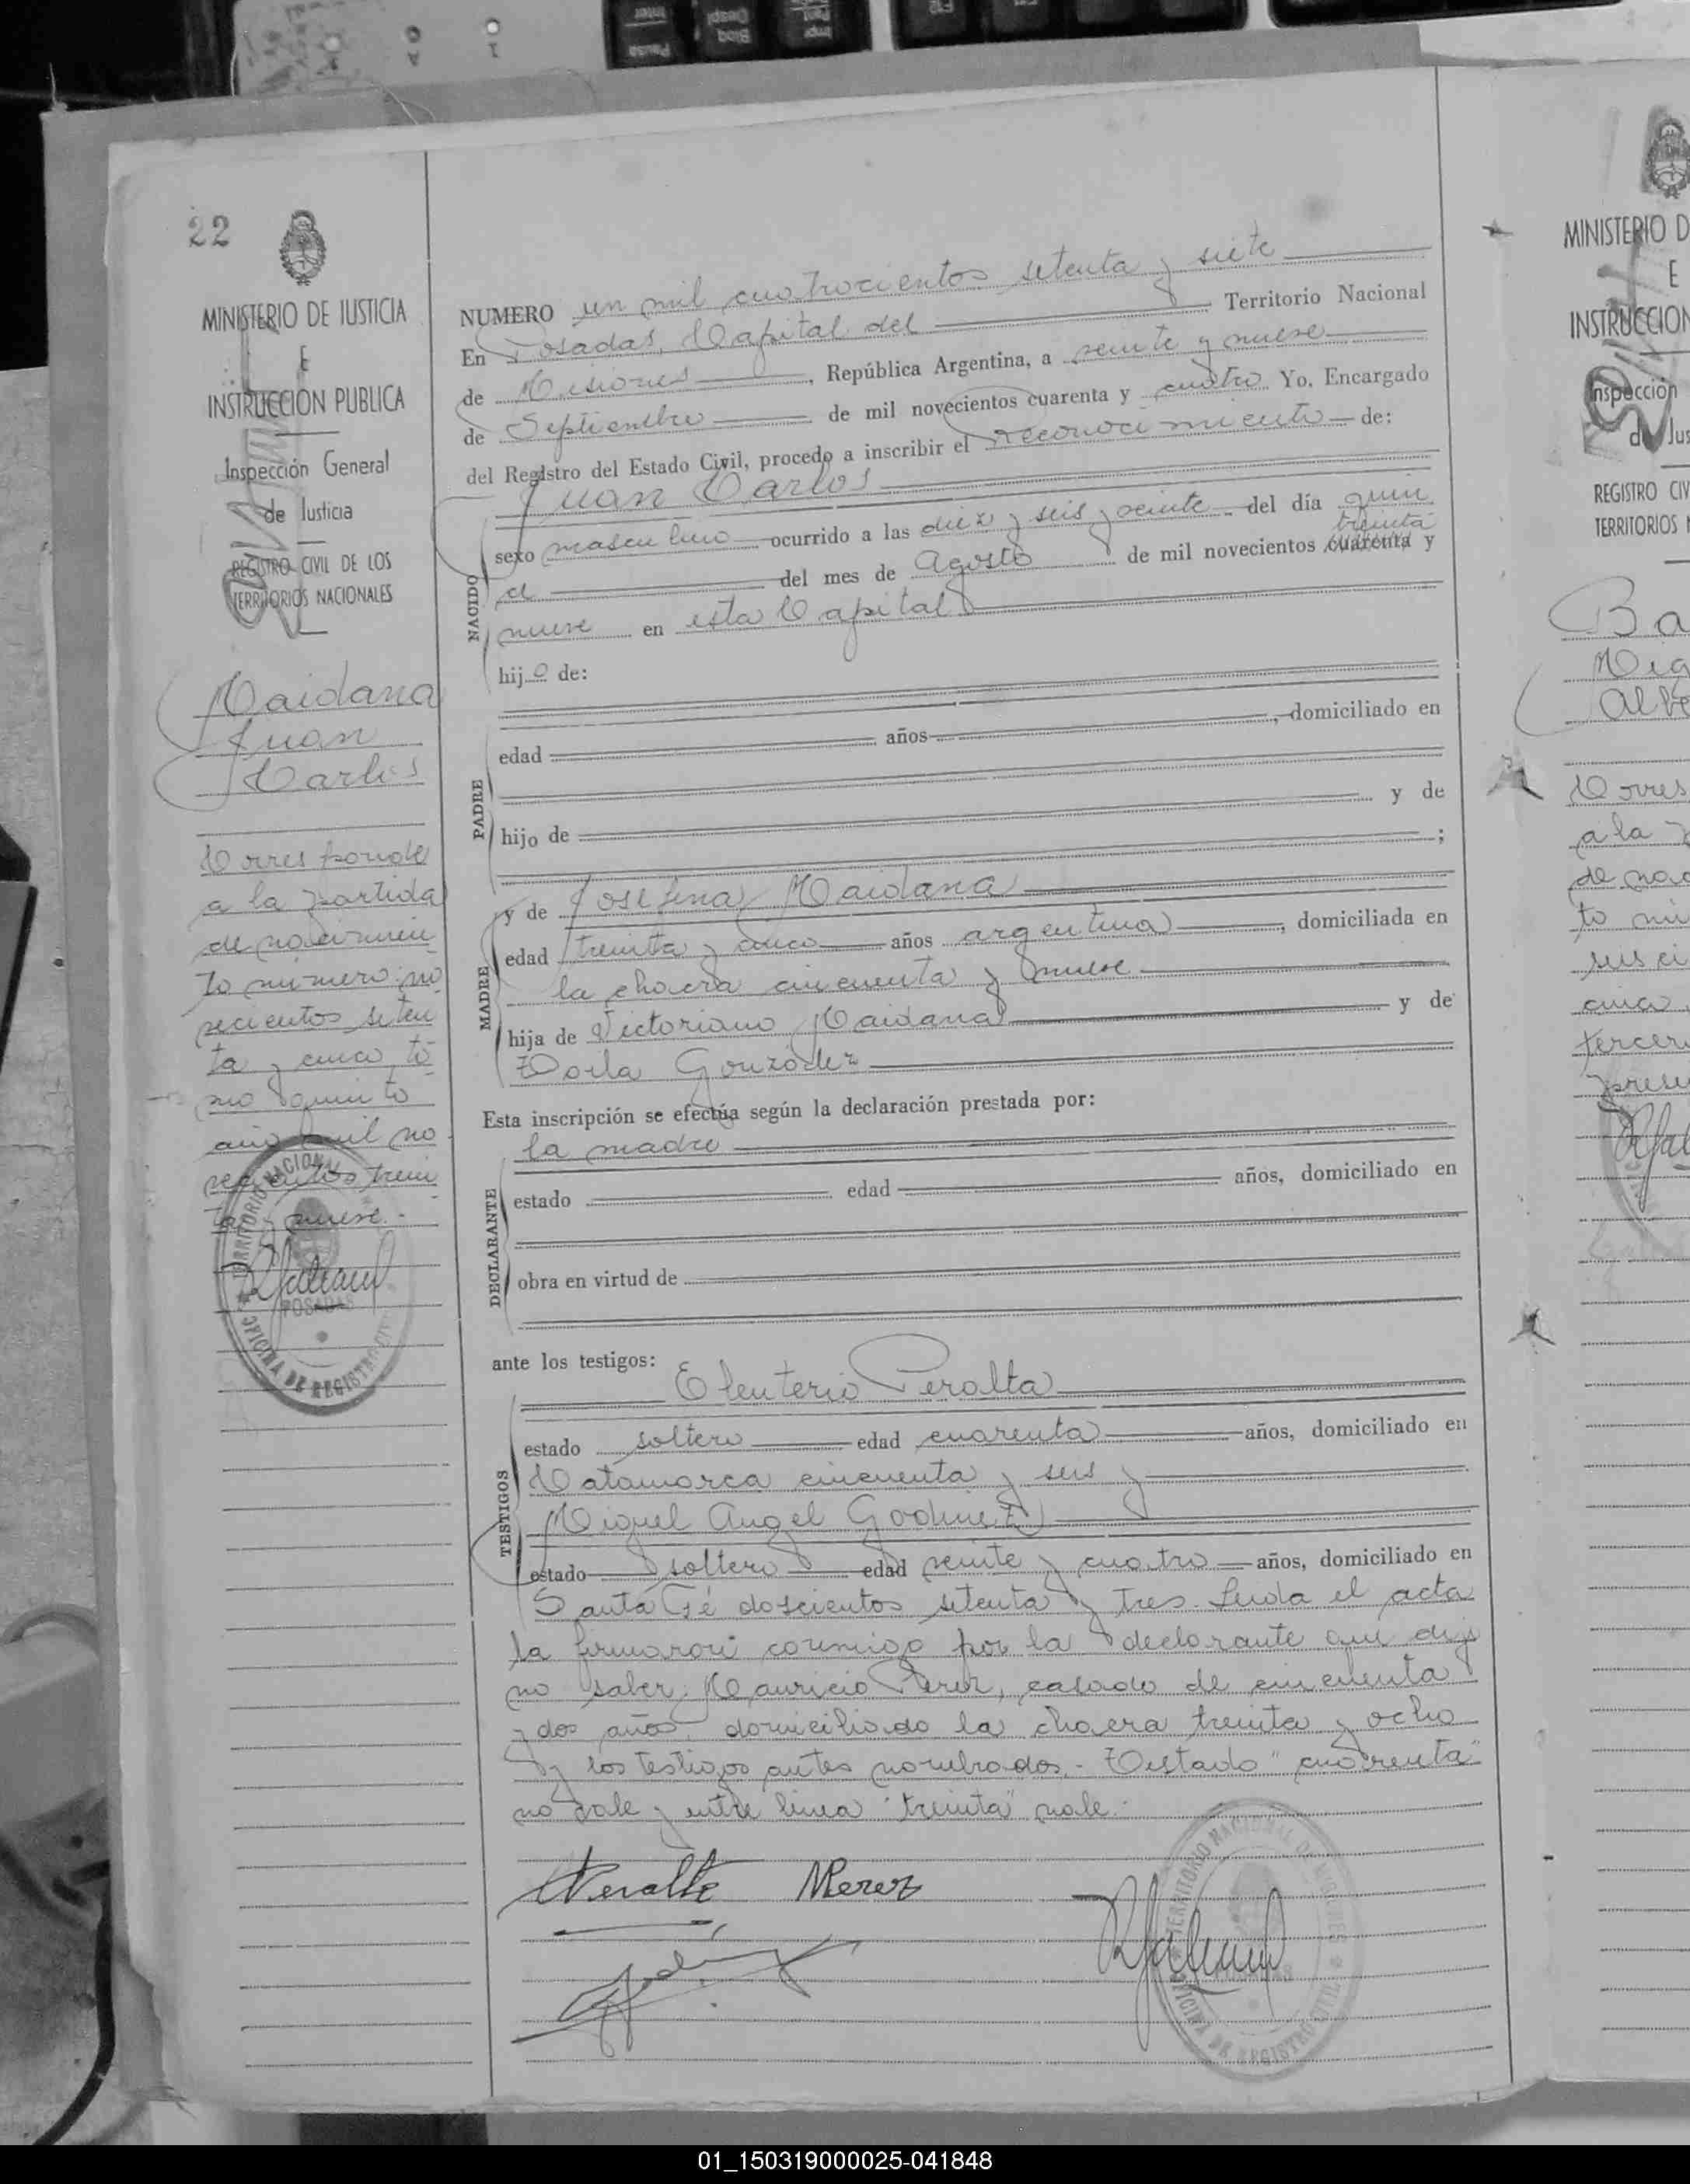 22
MINISTERIO DE JUSTICIA
E
INSTRUCCION PUBLICA
Inspección General
de Justicia
REGISTRO CIVIL DE LOS
TERRITORIOS NACIONALES
Maidana
Juan
Carlos
Corresponde
a la partida
de nacimien
to número no
vecientos seten
ta y cinco to
mo quinto
año mil no
vecientos trein
ta y nueve.-
TERRITORIO NACIONAL
POSADAS
OFICINA DE REGISTRO CIVIL
NUMERO un mil cuatrocientos setenta y siete
En Posadas, Capital del Territorio Nacional
de Misiones, República Argentina, a veinte y nueve
de Septiembre de mil novecientos cuarenta y cuatro Yo, Encargado
del Registro del Estado Civil, procedo a inscribir el reconocimiento de:
Juan Carlos
NACIDO
sexo masculino ocurrido a las diez y seis y veinte del día quin
treinta
ce del mes de Agosto de mil novecientos cuarenta y
nueve en esta Capital
hijo de:
PADRE
edad años , domiciliado en
hijo de y de
;
MADRE
y de Josefina Maidana
edad treinta y cinco años argentina, domiciliada en
la chacra cincuenta y nueve
hija de Victoriano Maidana y de
Zoila González
Esta inscripción se efectúa según la declaración prestada por:
la madre
DECLARANTE
estado edad años, domiciliado en
obra en virtud de
ante los testigos:
Eleuterio Peralta
TESTIGOS
estado soltero edad cuarenta años, domiciliado en
Catamarca cincuenta y seis y
Miguel Angel Godinez
estado soltero edad veinte y cuatro años, domiciliado en
Santa Fé doscientos setenta y tres. Leida el acta
la firmaron conmigo por la declarante que dijo
no saber; Mauricio Perez, casado de cincuenta
y dos años domiciliado la chacra treinta y ocho
y los testigos antes nombrados.- Testado "cuarenta"
no vale y entre linea "treinta" vale.-
Peralta MPerez
TERRITORIO NACIONAL DE MISIONES
OFICINA DE REGISTRO CIVIL
MINISTERIO D
E
INSTRUCCION
Inspección
de Jus
REGISTRO CIV
TERRITORIOS N
Ba
Mig
Albe
Corres
a la
de nac
to nú
seisci
cinco
tercer
prese
01_150319000025-041848